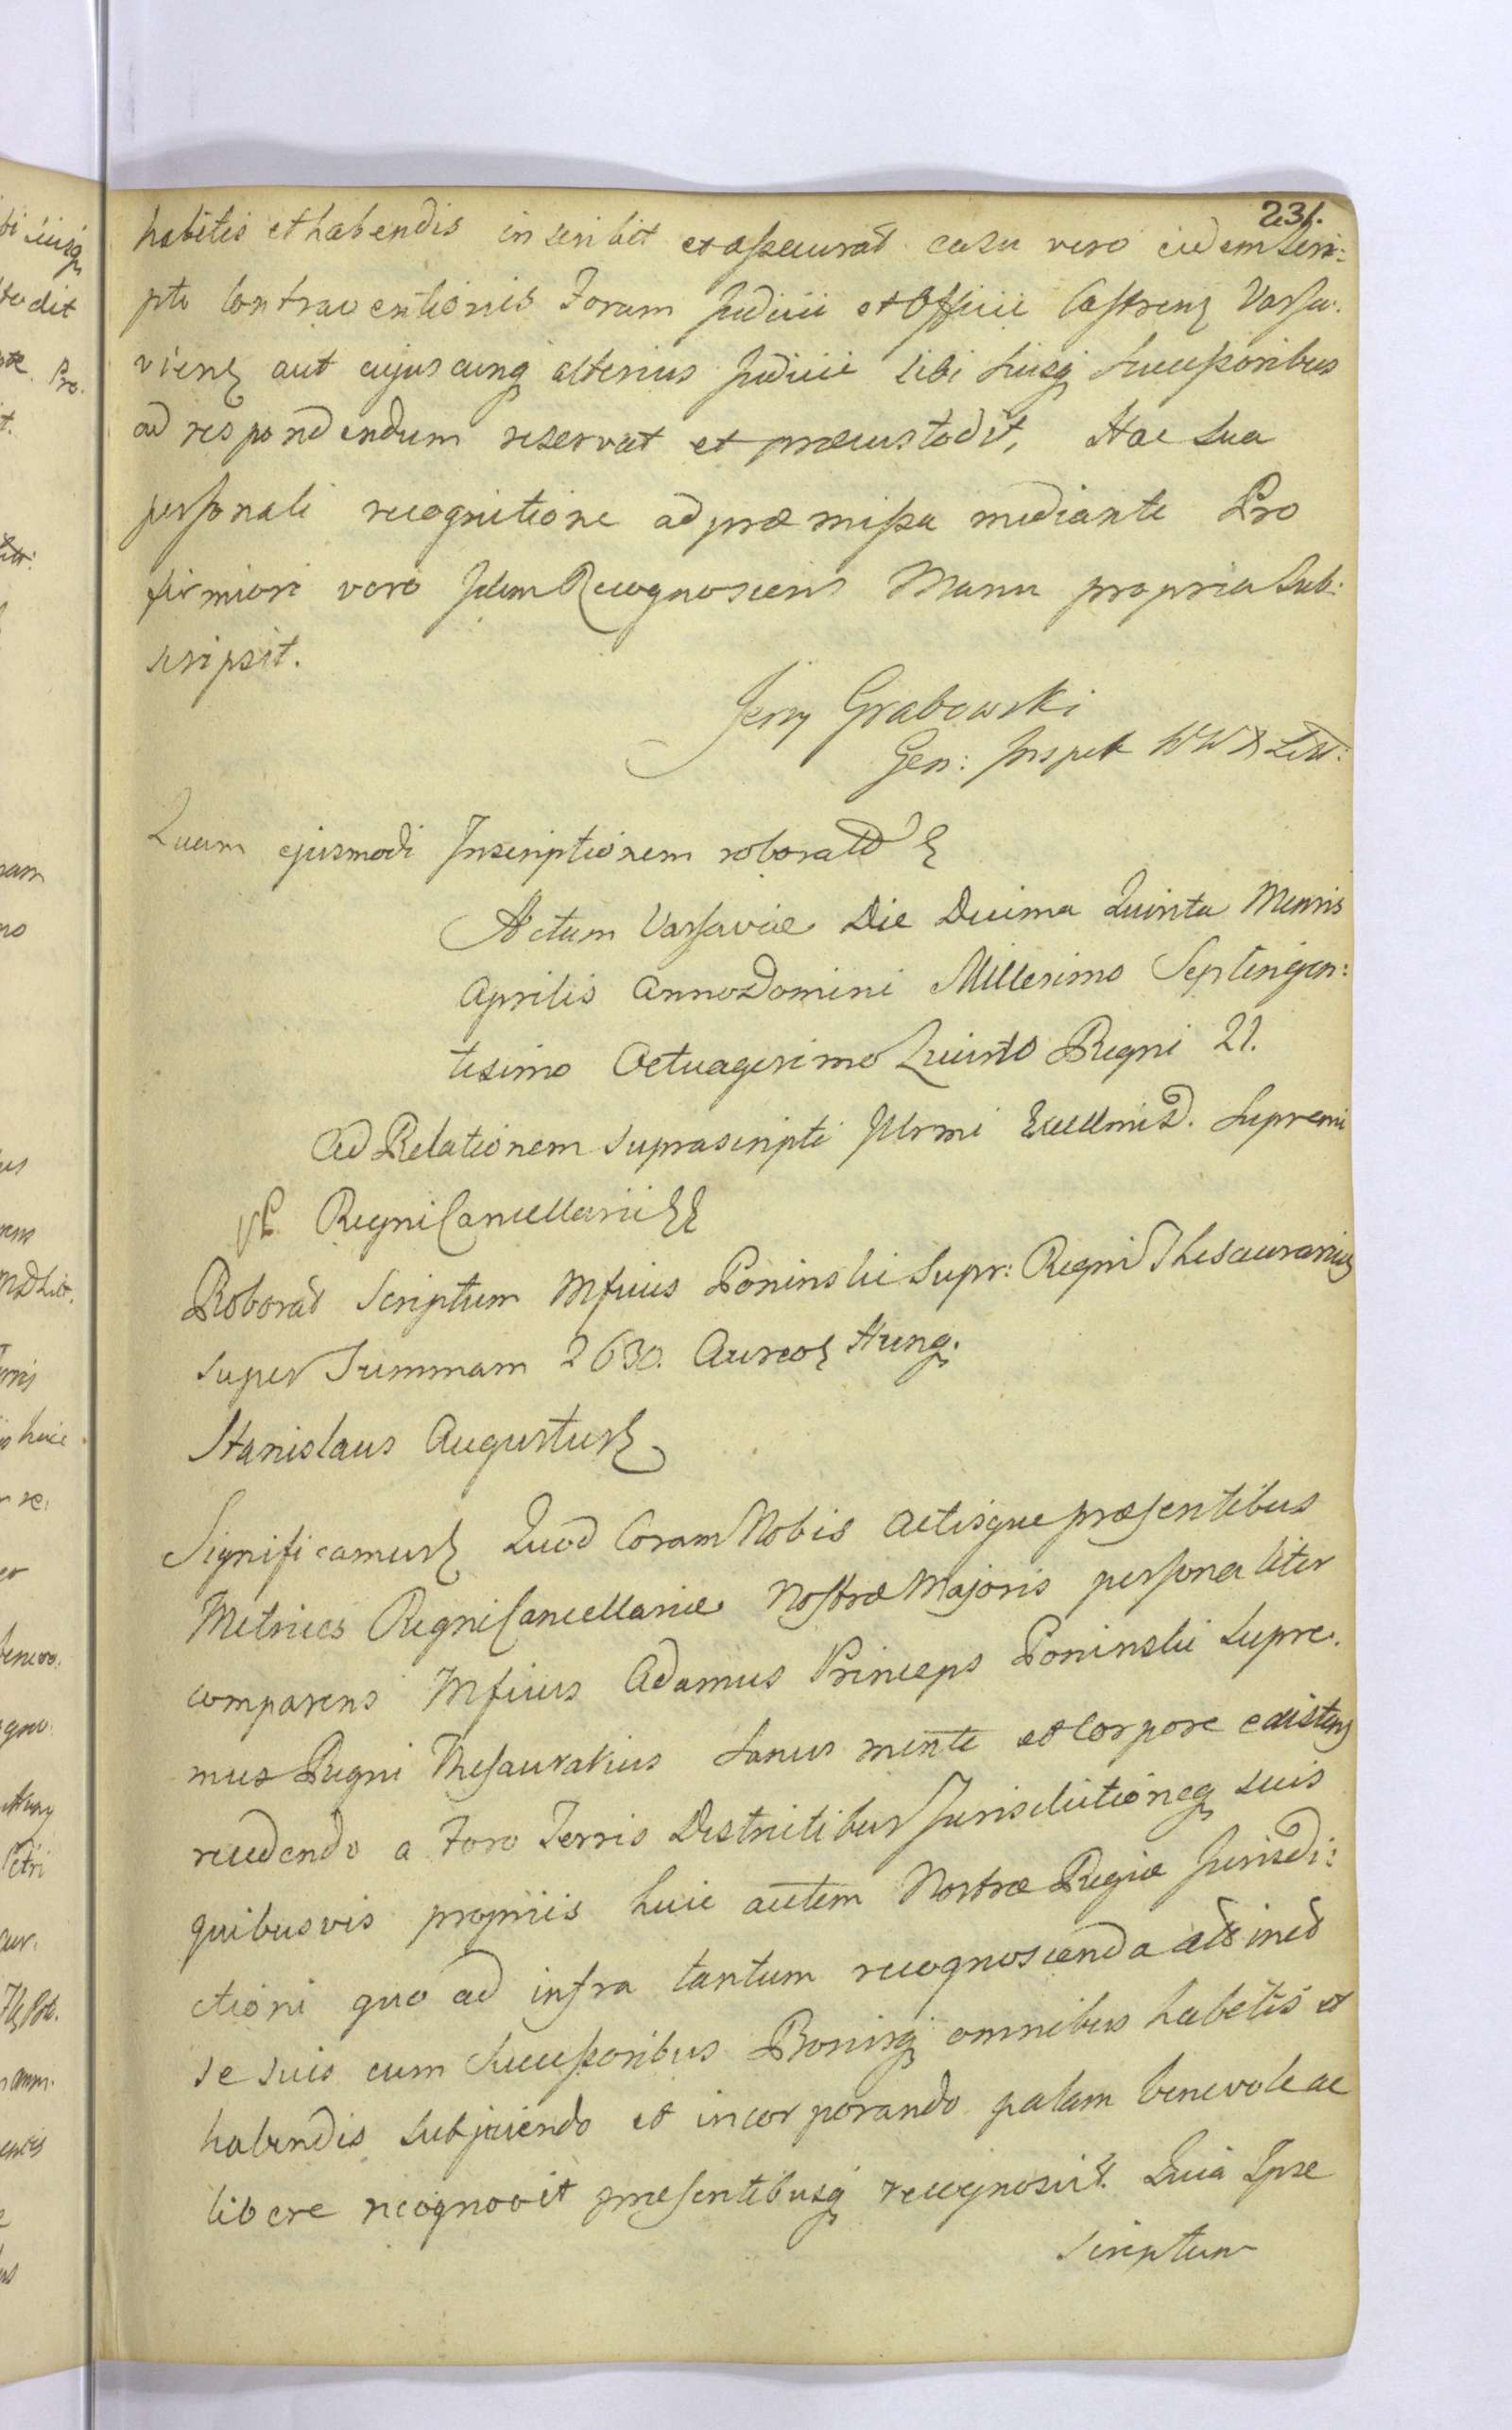 231.
habitis et habendis inscribit et assecurat casu vero eidem Scri:
pto Contraventionis Forum Judicii et Officii Castrens Varsa:
viens aut cujuscunq alterius Judicii sibi suisq Successoribus
ad respondendum reservat et præcustodit, Hac sua
personali recognitione ad præmissa mediante Pro
firmiori vero Idem Recognoscens Manu propria Sub:
scripsit.
Jerzy Grabowski
Gen: Inspek WWX Litt:
Quam ejusmodi Inscriptionem roborat
Actum Varsaviæ Die Decima Quinta Mensis
Aprilis Anno Domini Millesimo Septingen:
tesimo Octuagesimo Quinto Regni 21.
Ad Relationem suprascripti Illrmi Excellmi D. Supremi
Regni Cancellarii
Roborat Scriptum Mficus Poninski Supr: Regni Thesaurarius
super Summam 2630. Aureos Hung.
Stanislaus Augustus
Significamus Quod Coram Nobis Actisque præsentibus
Metrices Regni Cancellariæ Nostræ Majoris personaliter
comparens Mficus Adamus Princeps Poninski Supre.
mus Regni Thesaurarius sanus mente et Corpore existens
recedendo a Foro Terris Districtibus Jurisdictioneq suis
quibusvis propriis huic autem Nostræ Regiæ Jurisdi:
ctioni quo ad infra tantum recognoscenda att ined
se suis cum Successoribus Bonisq omnibus habitis et
habendis subjiciendo et incorporando palam benevole ac
libere recognovit præsentibusq recognoscit. Quia Ipse
Scriptum